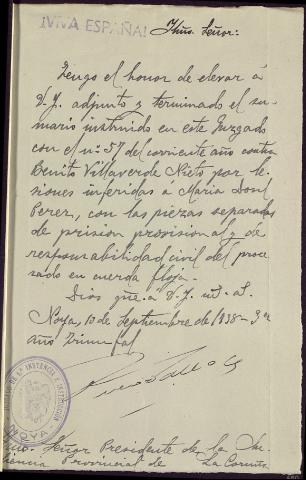 ¡VIVA ESPAÑA!
Iltmo. Señor:
Tengo el honor de elevar á
V.I. adjunto y terminado el su-
mario instruido en este Juzgado
con el nº 57 del corriente año contra
Benito Villaverde Nieto por le-
siones inferidas a Maria
Perez, con las piezas separadas
de prision provisional y de
responsabilidad civil del proce-
sado en cuerda floja.
Dios gue. a V.I. m. a.
Noya, 10 de Septiembre de 1938 - 3er
año Triunfal
Iltmo. Señor Presidente de la Au-
diencia Provincial de La Coruña
INSTANCIA E INSTRUCCION
NOYA